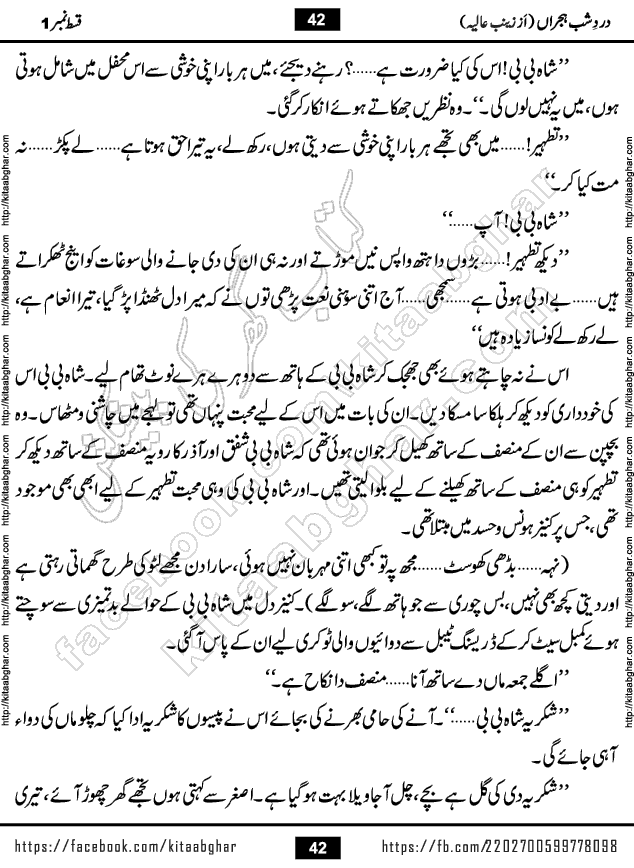 دردِشب ہجراں (اَز زینب عالیہ)
42
قسط نمبر 1
’’شاہ بی بی! اس کی کیا ضرورت ہے……؟ رہنے دیجئے، میں ہر بار اپنی خوشی سے اس محفل میں شامل ہوتی
ہوں، میں یہ نہیں لوں گی۔‘‘۔ وہ نظریں جھکاتے ہوئے انکار کر گئی۔
’’تطہیر!……میں بھی تجھے ہر بار اپنی خوشی سے دیتی ہوں، رکھ لے، یہ تیرا حق ہوتا ہے……لے پکڑ……نہ
مت کیا کر۔‘‘
’’شاہ بی بی! آپ……‘‘
’’دیکھ تطہیر!……بڑوں دا ہتھ واپس نیں موڑتے اور نہ ہی ان کی دی جانے والی سوغات کو اینج ٹھکراتے
ہیں……بے ادبی ہوتی ہے……سمجھی……آج اتنی سوہنی نعت پڑھی توں نے کہ میرا دل ٹھنڈا پڑ گیا، تیرا انعام ہے،
لے رکھ لے کونسا زیادہ ہیں‘‘
اس نے نہ چاہتے ہوئے بھی جھجک کر شاہ بی بی کے ہاتھ سے دو ہرے ہرے نوٹ تھام لیے۔ شاہ بی بی اس
کی خودداری کو دیکھ کر ہلکا سا مسکا دیں۔ ان کی بات میں اس کے لیے محبت پنہاں تھی تو لہجے میں چاشنی و مٹھاس۔ وہ
بچپن سے ان کے منصف کے ساتھ کھیل کر جوان ہوئی تھی کہ شاہ بی بی شفق اور آذر کا رویہ منصف کے ساتھ دیکھ کر
تطہیر کو ہی منصف کے ساتھ کھیلنے کے لیے بلوا لیتی تھیں۔ اور شاہ بی بی کی وہی محبت تطہیر کے لیے ابھی بھی موجود
تھی، جس پر کنیز ہونس و حسد میں مبتلا تھی۔
(نہہ……بڈھی کھوسٹ……مجھ پہ تو کبھی اتنی مہربان نہیں ہوئی، سارا دن مجھے لٹو کی طرح گھماتی رہتی ہے
اور دیتی کچھ بھی نہیں، بس چوری سے جو ہاتھ لگے، سو لگے)۔ کنیز دل میں شاہ بی بی کے حوالے بدتمیزی سے سوچتے
ہوئے کمبل سیٹ کر کے ڈریسنگ ٹیبل سے دوائیوں والی ٹوکری لیے ان کے پاس آ گئی۔
’’اگلے جمعہ ماں دے ساتھ آنا……منصف دا نکاح ہے۔‘‘
’’شکریہ شاہ بی بی……‘‘۔ آنے کی حامی بھرنے کی بجائے اس نے پیسوں کا شکریہ ادا کیا کہ چلو ماں کی دواء
آ ہی جائے گی۔
’’شکریہ دی کی گل ہے بچے، چل آ جا ویلا بہت ہو گیا ہے۔ اصغر سے کہتی ہوں تجھے گھر چھوڑ آئے، تیری
کتاب گھر کی پیشکش
facebook.com/kitaabghar
kitaabghar.com
http://kitaabghar.com http://kitaabghar.com http://kitaabghar.com http://kitaabghar.com http://kitaabghar.com http://kitaabghar.com
http://kitaabghar.com http://kitaabghar.com http://kitaabghar.com http://kitaabghar.com http://kitaabghar.com http://kitaabghar.com
https://facebook.com/kitaabghar
42
https://fb.com/2202700599778098